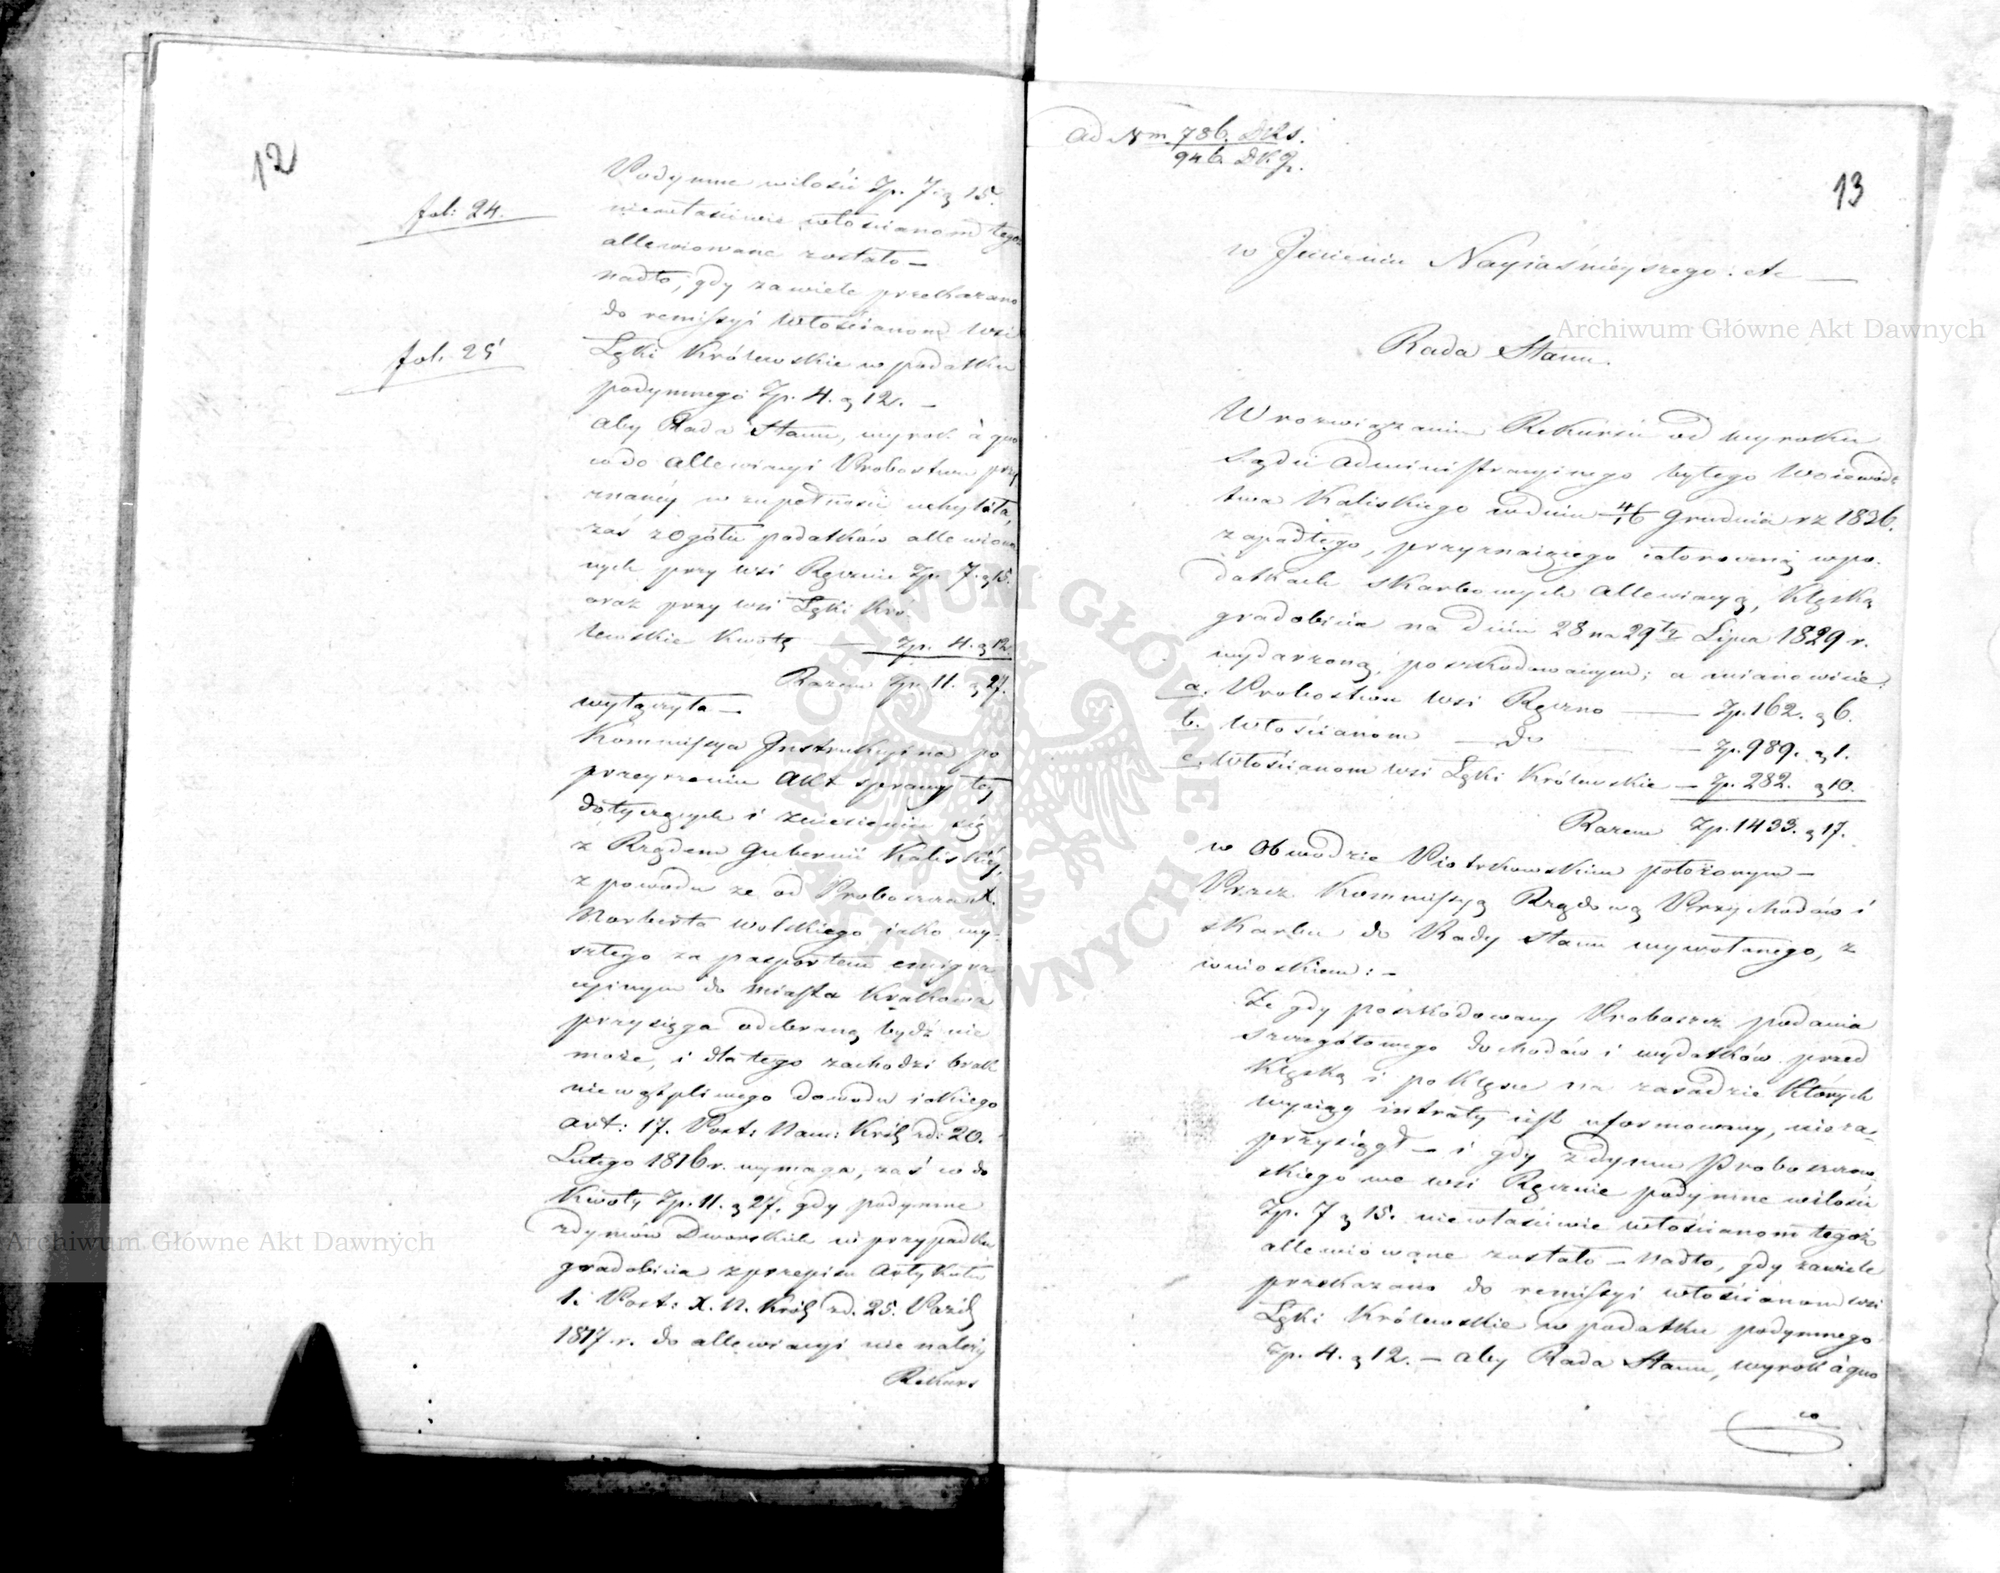 12
fol: 24.
Podymne wilości Zp. 7. g 15.
niewłaściwie włościanom tegoż
allewiowane zostało —
nadto, gdy zawiele przekazano
do remissyi Włościanom wsi
fol: 25
Łęki Królewskie w podatku
podymnego Zp. 4. g 12. —
aby Rada Stanu, wyrok à quo
co do allewiacyi Probostwu przy
znanéy w zupełności uchyliła,
zaś z ogółu podatków allewiowa
nych przy wsi Ręcznie Zp. 7. g 15.
oraz przy wsi Łęki Kró
lewskie Kwotę — Zp. 4. g 12.
Razem Zp. 11. g 27.
wyłączyła —
Kommissya Instrukcyina po
przeyrzeniu Akt sprawy téy
dotyczących i zniesieniu się
z Rządem Gubernii Kaliskiéy,
z powodu że od Proboszcza X.
Norberta Wolskiego iako wy-
szłego za paszportem emigra
cyinym do Miasta Krakowa
przysięga odebraną bydź nie
może, i dla tego zachodzi brak
niewątpliwego dowodu iakiego
Art: 17. Post: Nam: Król: zd: 20.
Lutego 1816 r. wymaga, zaś co do
Kwoty Zp. 11. g 27. gdy podymne
z dymów Dworskich w przypadku
gradobicia z przepisu Artykułu
1. Post: X. N. Król: zd. 25. Paźdz
1817. r. do allewiacyi nie należy
Rekurs
ad Nm. 786. DRS.
946. DKG.
13
w Jmieniu Nayiaśnieyszego: etc —
Archiwum Główne Akt Dawnych
Rada Stanu.
W rozwiązaniu Rekursu od wyroku
Sądu Administracyinego byłego Woiewódz
twa Kaliskiego w dniu 4/16 Grudnia rz 1836.
zapadłego, przyznaiącego całoroczną w po-
datkach skarbowych allewiacyą, Klęską
gradobicia na dniu 28 na 29ty Lipca 1829 r.
wydarzoną, poszkodowanym; a mianowicie:
a. Probostwu wsi Ręczno — Zp. 162. g 6.
b. Włościanom — do — Zp. 989. g 1.
c. Włościanom wsi Łęki Królewskie — Zp. 282. g 10.
Razem Zp. 1433. g 17.
w Obwodzie Piotrkowskim położonym —
Przez Kommissyą Rządową Przychodów i
Skarbu do Rady Stanu wywołanego, z
wnioskiem: —
Że gdy poszkodowany Proboszcz podania
szczegółowego dochodów i wydatków przed
Klęską i po Klęsce na zasadzie Których
wyciąg intraty iest uformowany, nieza-
przysiągł — i gdy z dymu Proboszczow
skiego we wsi Ręcznie podymne wilości
Zp. 7 g 15. niewłaściwie włościanom tegoż
allewiowane zostało — nadto, gdy zawiele
przekazano do remissyi włościanom wsi
Łęki Królewskie w podatku podymnego
Zp. 4. g 12. — aby Rada Stanu, wyrok à quo
co
Archiwum Główne Akt Dawnych
ARCHIWUM GŁÓWNE · AKT DAWNYCH ·